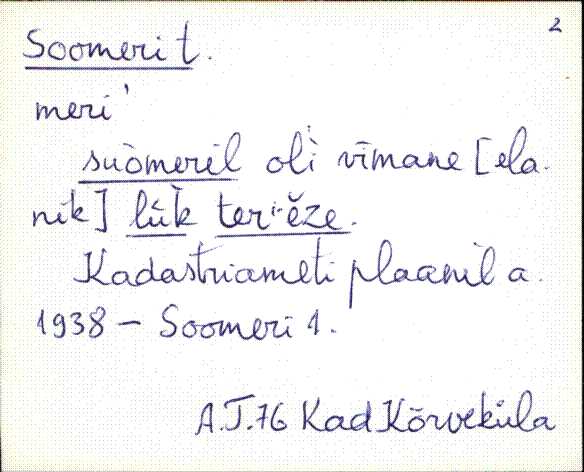 2
Soomeri t.
meri'
suòmeril̀ oĺi vīmane [ela-
nik] lūk̀ teri-ĕze.
Kadastriameti plaanil a.
1938 – Soomeri 1.
A.T.76 Kad Kõrveküla